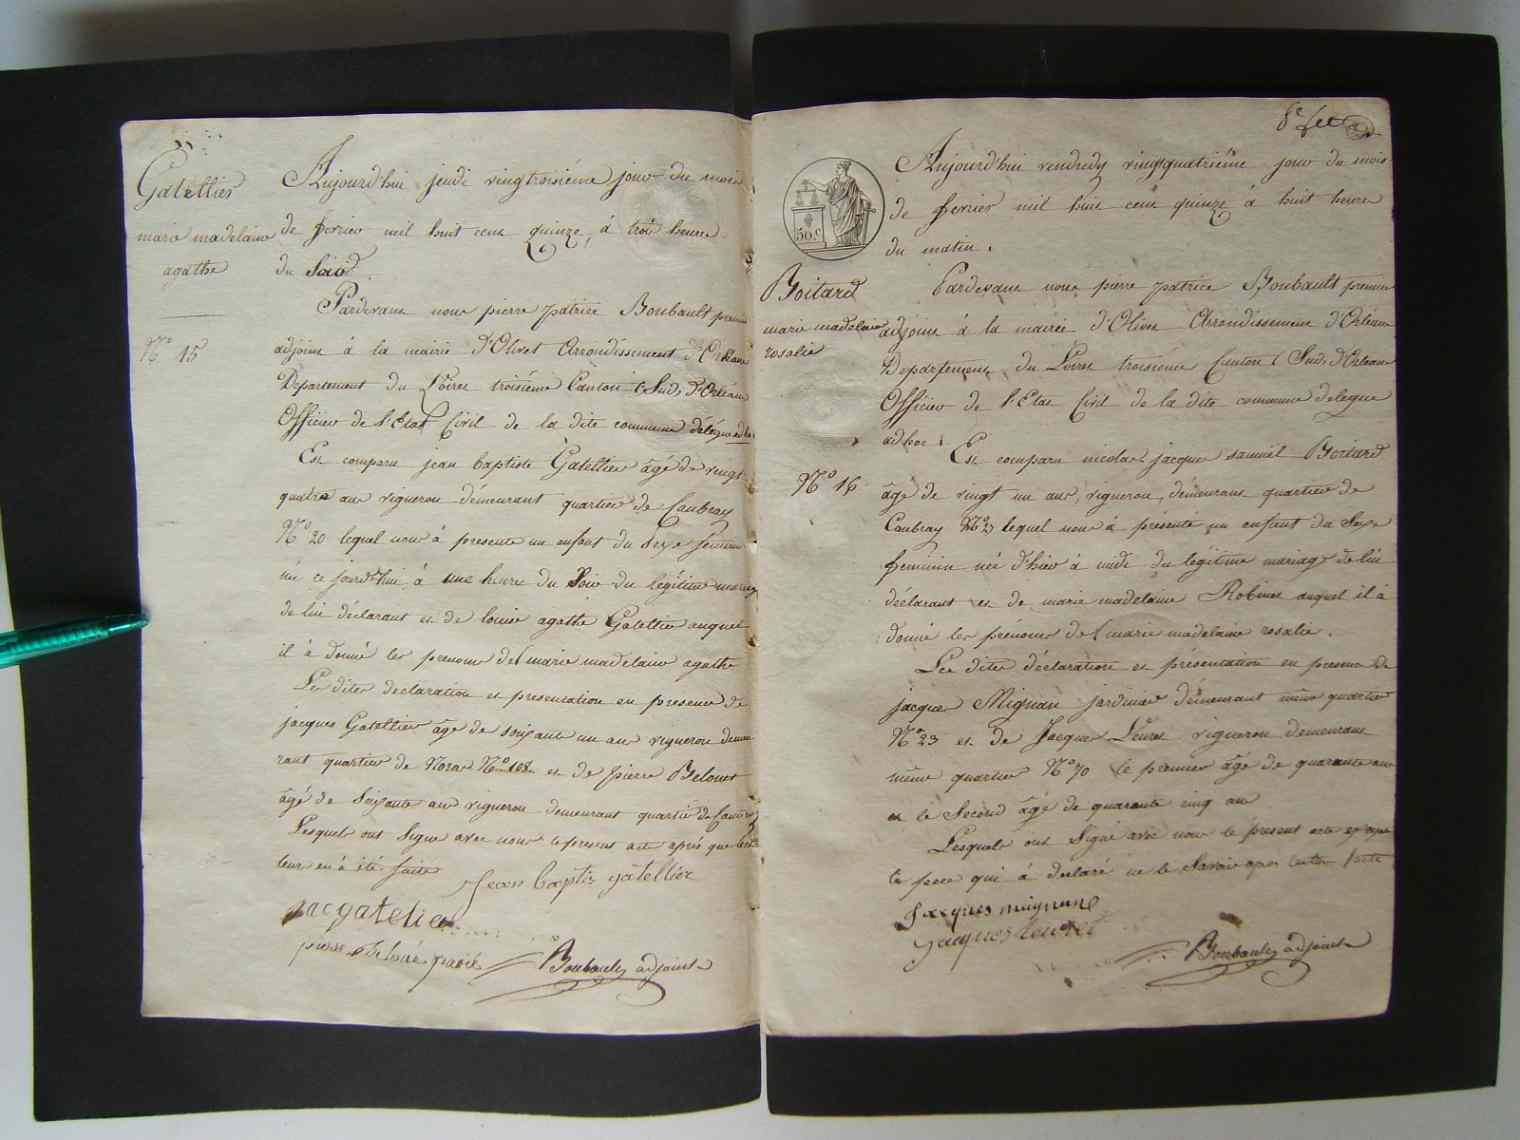 Gatellier
marie madelaine
agathe
N.o 15
Aujourd'hui jeudi vingtroisiéme jour du mois
de fevrier mil huit cent quinze, à trois heure
du Soir.
Pardevant nous pierre patrice Boubault premier
adjoint à la mairie d'Olivet Arrondissement d'Orléans
Departement du Loiret troisiéme Canton (Sud) d'Orléans
Officier de l'Etat Civil de la dite commune délégué ad hoc
Est comparu jean baptiste Gatellier âgé de vingt
quatre ans vigneron demeurant quartier de Caubray
N.o 20 lequel nous à presenté un enfant du sexe feminin
né ce jourd'hui à une heure du Soir du légitime mariage
de lui déclarant et de louise agathe Gatellier auquel
il à donné les prenoms de marie madelaine agathe
Les dites declaration et presentation en presence de
jacques Gatellier âgé de soixante un ans vigneron demeu
rant quartier de N.o 108 et de pierre Belouet
âgé de Soixante ans vigneron demeurant quartier de
Lesquels ont Signé avec nous le present acte aprés que lecture
leur en à été faite
Jean baptis gatellier
jacgatelie
pierre
Boubault adjoint
8e
50.c
Boitard
marie madelaine
rosalie
N.o 16
Aujourd'hui vendredy vingtquatriéme jour du mois
de fevrier mil huit cent quinze à huit heure
du matin.
Pardevant nous pierre patrice Boubault premier
adjoint à la mairie d'Olivet Arrondissement d'Orléans
Departement du Loiret troisiéme Canton (Sud) d'Orléans
Officier de l'Etat Civil de la dite commune delegué
ad hoc.
Est comparu nicolas jacques samuel Boitard
âgé de vingt un ans, vigneron, demeurant quartier de
Caubray N.o 23 lequel nous à présenté un enfant du Sexe
feminin né d'hier à midi du légitime mariage de lui
déclarant et de marie madelaine Robinet auquel il à
donné les prénoms de marie madelaine rosalie.
Les dites déclaration et présentation en presence de
jacques Mignan jardinier demeurant même quartier
N.o 23 et de Jacques Leuret vigneron demeurant
même quartier N.o 70 le premier âgé de quarante ans
et le Second âgé de quarante cinq ans
Lesquels ont Signé avec nous le present acte excepté
le pere qui à declaré ne le Savoir aprés lecture faite
Jacques mignan
jacques leuret
Boubault adjoint